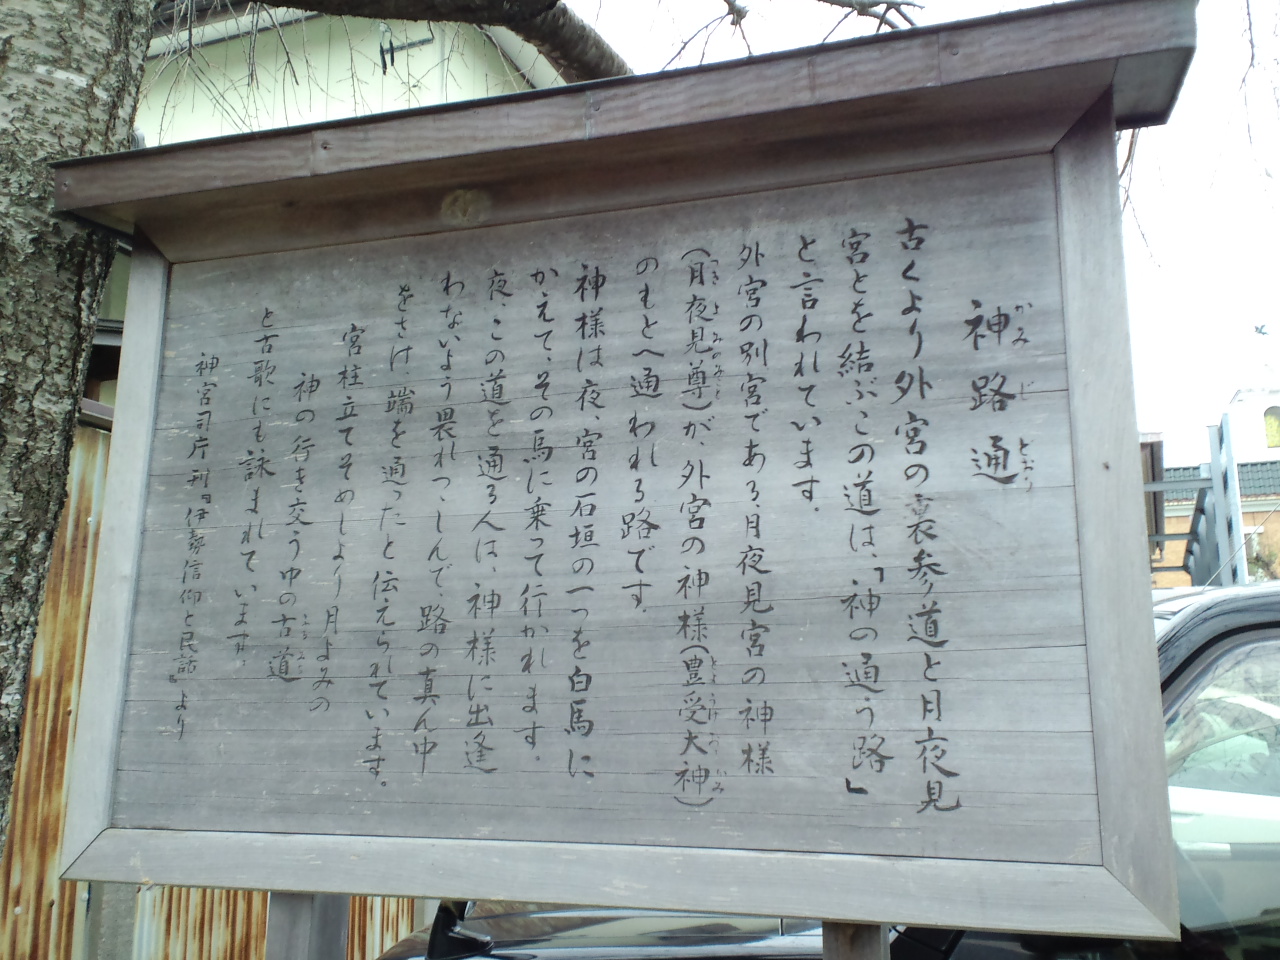 神路通
古くより外宮の裏参道と月夜見
宮とを結ぶこの道は、「神の通う路」
と言われています。
外宮の別宮である、月夜見宮の神様
(月夜見尊)が、外宮の神様(豊受大神)
のもとへ通われる路です。
神様は夜、宮の石垣の一つを白馬に
かえて、その馬に乗って行かれます。
夜、この道を通る人は、神様に出逢
わないよう畏れつゝしんで、路の真ん中
をさけ、端を通ったと伝えられています。
宮柱立てそめしより月よみの
神の行き交う中の古道
と古歌にも詠まれています。
神宮司庁刊『伊勢信仰と民話』より